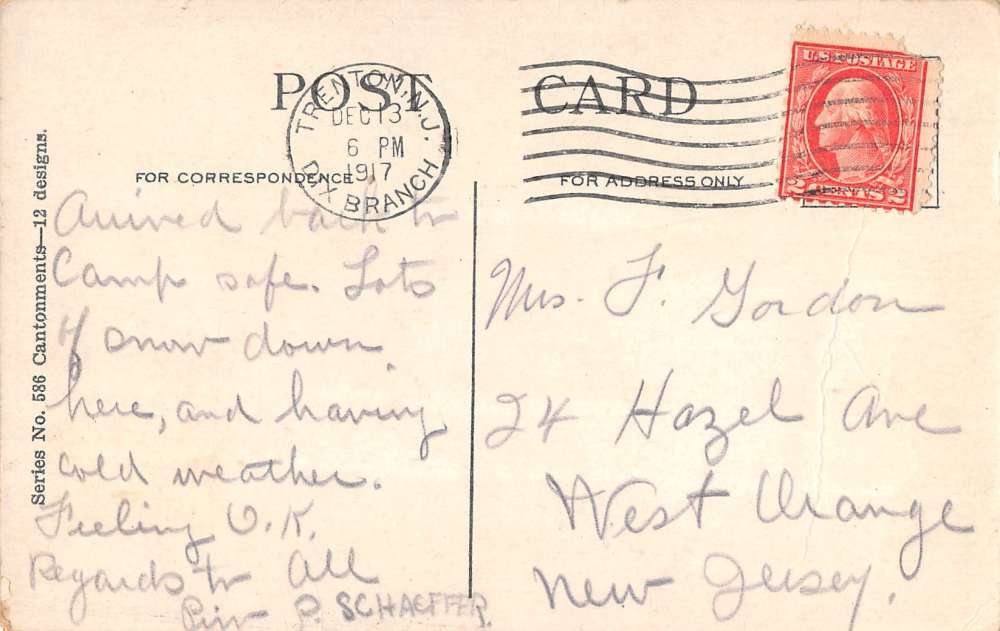 POST CARD
TRENTON, N.J.
DEC 13
6 PM
1917
DIX BRANCH
U.S. POSTAGE
2 CENTS 2
FOR CORRESPONDENCE
FOR ADDRESS ONLY
Series No. 586 Cantonments—12 designs.
Arrived back to
Camp safe. Lots
of snow down
here, and having
cold weather.
Feeling O.K.
Regards to All
Priv P. SCHAEFFER.
Mrs. F. Gordon
24 Hazel Ave
West Orange
New Jersey.